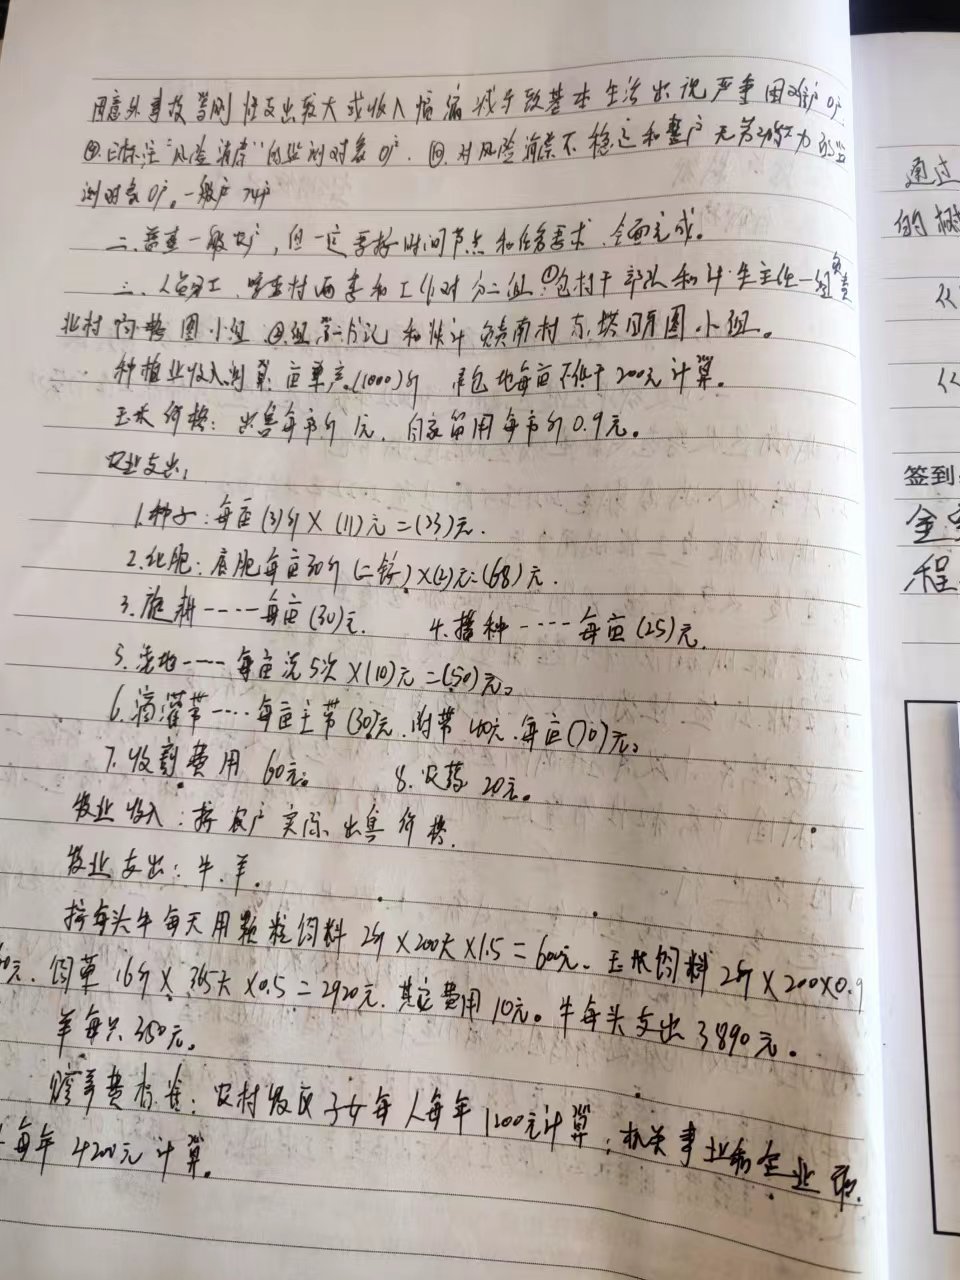 因意外事故等刚性支出较大或收入大幅缩减导致基本生活出现严重困难户0户
④已标注"风险消除"的监测对象0户.⑤.对风险消除不稳定和整户无劳动能力的监
测对象0户。一般户74户
二.普查一般农户,但一定要按时间节点和任务要求,全面完成。
三、人员分工、驻村两委和工作队对分二组.①包村干部队和计生主任一组负责
北村
种植业收入测算:亩单产(1000)斤 承包地每亩不低于200元计算。
玉米价格:出售每市斤1元,自家留用每市斤0.9元。
农业支出:
1.种子:每亩(3)斤×(11)元=(33)元.
2.化肥:底肥每亩30斤()×(2)元=(68)元.
3.旋耕----每亩(30)元. 4.播种----每亩(25)元.
5.浇地----每亩浇5次×(10)元=(50)元。
6.滴灌带----每亩主带(30)元.附带40元.每亩(70)元。
7.收割费用 60元。 8.农药 20元。
牧业收入:按农户实际出售价格.
牧业支出:牛.羊.
按每头牛每天用颗粒饲料2斤×200天×1.5=600元.玉米饲料2斤×200×0.9
元.饲草16斤×365天×0.5=2920元.其它费用10元。牛每头支出3890元。
羊每只350元。
赡养费标准:农村牧区子女每人每年1200元计算;机关事业和企业
每年4200元计算。
通过
的树
签到